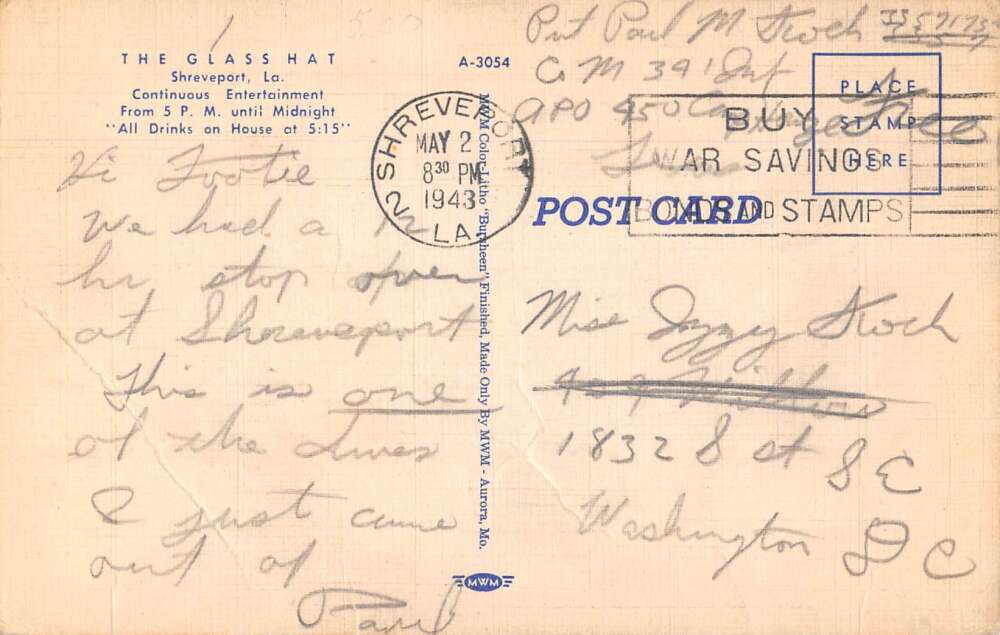 THE GLASS HAT
Shreveport, La.
Continuous Entertainment
From 5 P. M. until Midnight
"All Drinks on House at 5:15"
Hi Footie
We had a 12
hr stop over
at Shreveport
This is one
of the Dives
I just came
out of
Paul
A-3054
MWM Color-Litho "Bursheen" Finished, Made Only By MWM - Aurora, Mo.
MWM
SHREVEPORT
MAY 2
8 30 PM
1943
LA.
2
Pvt Paul M
Co M 391 Inf
APO 450
BUY
WAR SAVINGS
BONDS AND STAMPS
PLACE
STAMP
HERE
POST CARD
Miss Izzy
1832 S st SE
Washington DC